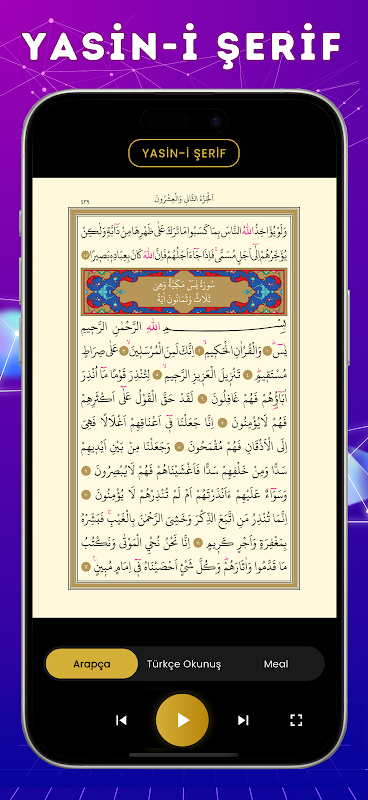 YASİN-İ ŞERİF
YASİN-İ ŞERİF
اَلْجُزْءُ الثَّانِي وَالْعِشْرُونَ
٤٣٩
وَلَوْ يُؤَاخِذُ اللّٰهُ النَّاسَ بِمَا كَسَبُوا مَا تَرَكَ عَلٰى ظَهْرِهَا مِنْ دَٓابَّةٍ وَلٰكِنْ
يُؤَخِّرُهُمْ اِلٰٓى اَجَلٍ مُسَمًّىۚ فَاِذَا جَٓاءَ اَجَلُهُمْ فَاِنَّ اللّٰهَ كَانَ بِعِبَادِه۪ بَص۪يرًا
سُورَةُ يٰسٓ مَكِّيَّةٌ وَهِيَ
ثَلَاثٌ وَثَمَانُونَ اٰيَةً
بِسْمِ اللّٰهِ الرَّحْمٰنِ الرَّح۪يمِ
يٰسٓۜ ﴿١﴾ وَالْقُرْاٰنِ الْحَك۪يمِۙ ﴿٢﴾ اِنَّكَ لَمِنَ الْمُرْسَل۪ينَۙ ﴿٣﴾ عَلٰى صِرَاطٍ
مُسْتَق۪يمٍۜ ﴿٤﴾ تَنْز۪يلَ الْعَز۪يزِ الرَّح۪يمِۙ ﴿٥﴾ لِتُنْذِرَ قَوْمًا مَٓا اُنْذِرَ
اٰبَٓاؤُ۬هُمْ فَهُمْ غَافِلُونَ ﴿٦﴾ لَقَدْ حَقَّ الْقَوْلُ عَلٰٓى اَكْثَرِهِمْ
فَهُمْ لَا يُؤْمِنُونَ ﴿٧﴾ اِنَّا جَعَلْنَا ف۪ٓي اَعْنَاقِهِمْ اَغْلَالًا فَهِيَ
اِلَى الْاَذْقَانِ فَهُمْ مُقْمَحُونَ ﴿٨﴾ وَجَعَلْنَا مِنْ بَيْنِ اَيْد۪يهِمْ
سَدًّا وَمِنْ خَلْفِهِمْ سَدًّا فَاَغْشَيْنَاهُمْ فَهُمْ لَا يُبْصِرُونَ ﴿٩﴾
وَسَوَٓاءٌ عَلَيْهِمْ ءَاَنْذَرْتَهُمْ اَمْ لَمْ تُنْذِرْهُمْ لَا يُؤْمِنُونَ ﴿١٠﴾
اِنَّمَا تُنْذِرُ مَنِ اتَّبَعَ الذِّكْرَ وَخَشِيَ الرَّحْمٰنَ بِالْغَيْبِۚ فَبَشِّرْهُ
بِمَغْفِرَةٍ وَاَجْرٍ كَر۪يمٍ ﴿١١﴾ اِنَّا نَحْنُ نُحْيِ الْمَوْتٰى وَنَكْتُبُ
مَا قَدَّمُوا وَاٰثَارَهُمْۜ وَكُلَّ شَيْءٍ اَحْصَيْنَاهُ ف۪ٓي اِمَامٍ مُب۪ينٍ۟ ﴿١٢﴾
Arapça
Türkçe Okunuş
Meal